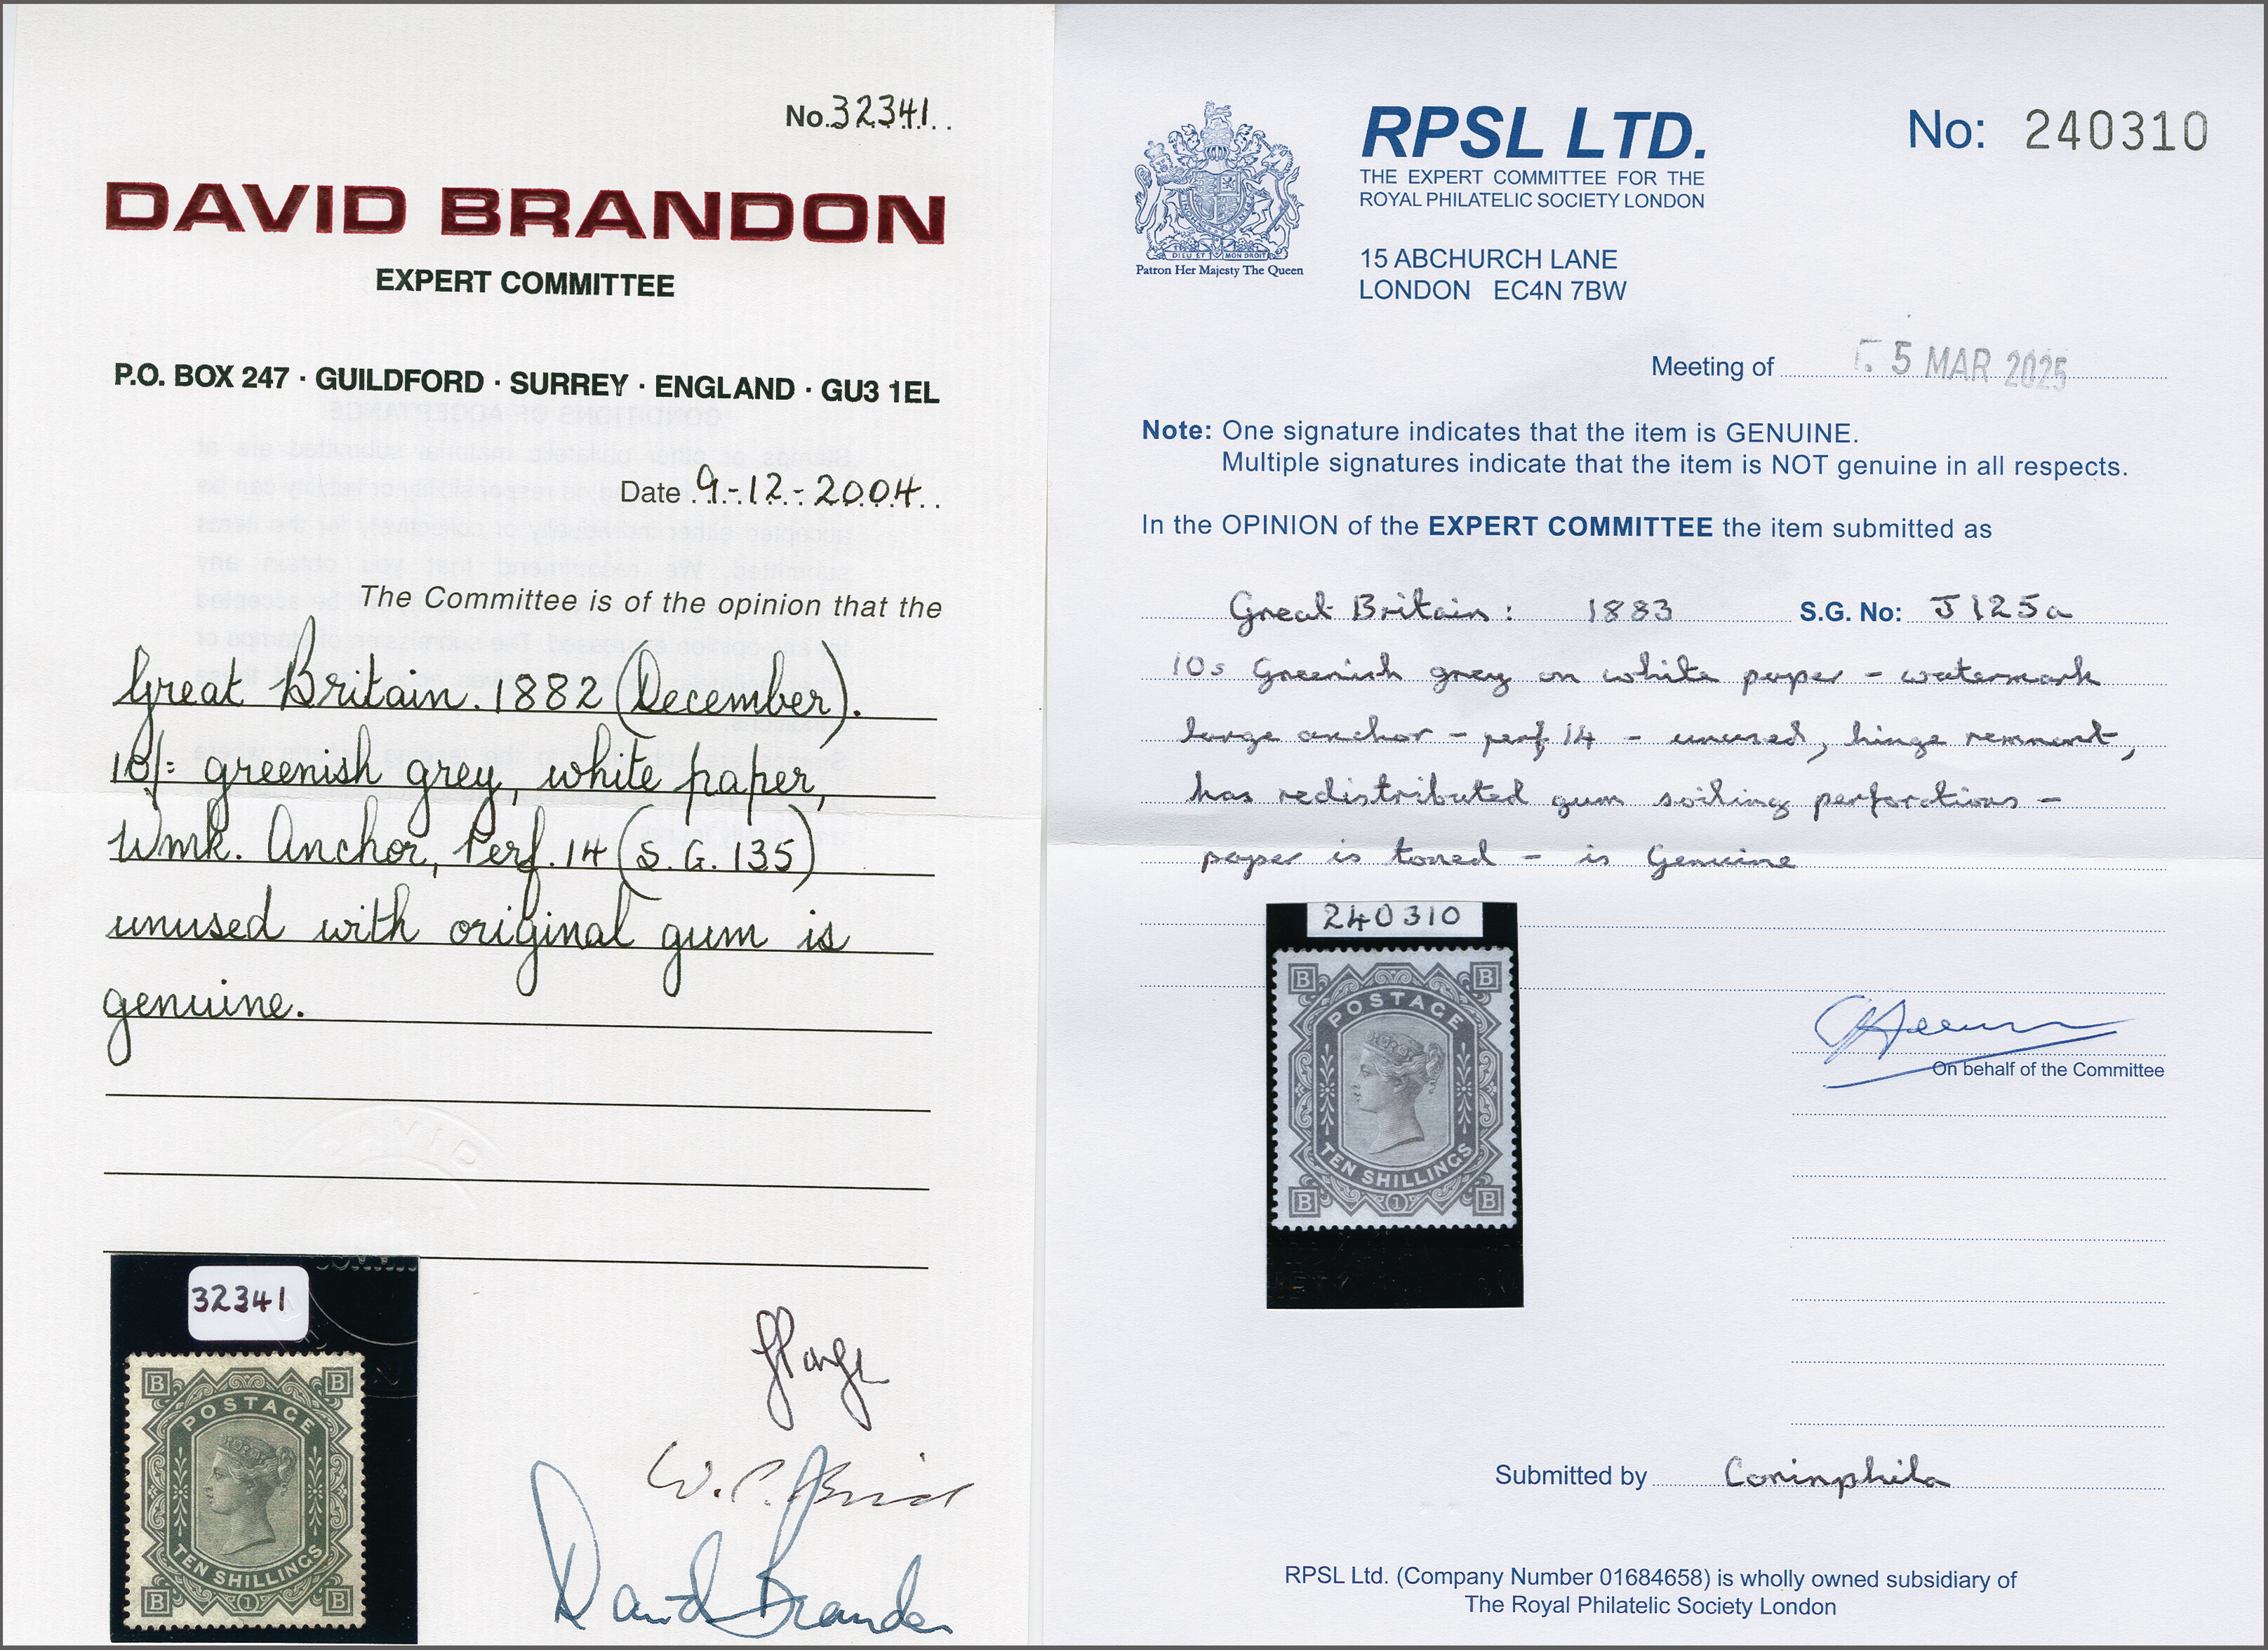 No. 32341
DAVID BRANDON
EXPERT COMMITTEE
P.O. BOX 247 · GUILDFORD · SURREY · ENGLAND · GU3 1EL
Date 9-12-2004
The Committee is of the opinion that the
Great Britain. 1882 (December).
10/= greenish grey, white paper,
Wmk. Anchor, Perf. 14 (S.G. 135)
unused with original gum is
genuine.
32341
B B
POSTAGE
TEN SHILLINGS
B 1 B
David Brandon
RPSL LTD.
THE EXPERT COMMITTEE FOR THE
ROYAL PHILATELIC SOCIETY LONDON
15 ABCHURCH LANE
LONDON EC4N 7BW
DIEU ET MON DROIT
Patron Her Majesty The Queen
No: 240310
Meeting of 5 MAR 2025
Note: One signature indicates that the item is GENUINE.
Multiple signatures indicate that the item is NOT genuine in all respects.
In the OPINION of the EXPERT COMMITTEE the item submitted as
Great Britain: 1883 S.G. No: J125a
10s Greenish grey on white paper - watermark
large anchor - perf 14 - unused, hinge remnant,
has redistributed gum soiling perforations -
paper is toned - is Genuine
240310
B B
POSTAGE
TEN SHILLINGS
B 1 B
On behalf of the Committee
Submitted by Corinphila
RPSL Ltd. (Company Number 01684658) is wholly owned subsidiary of
The Royal Philatelic Society London